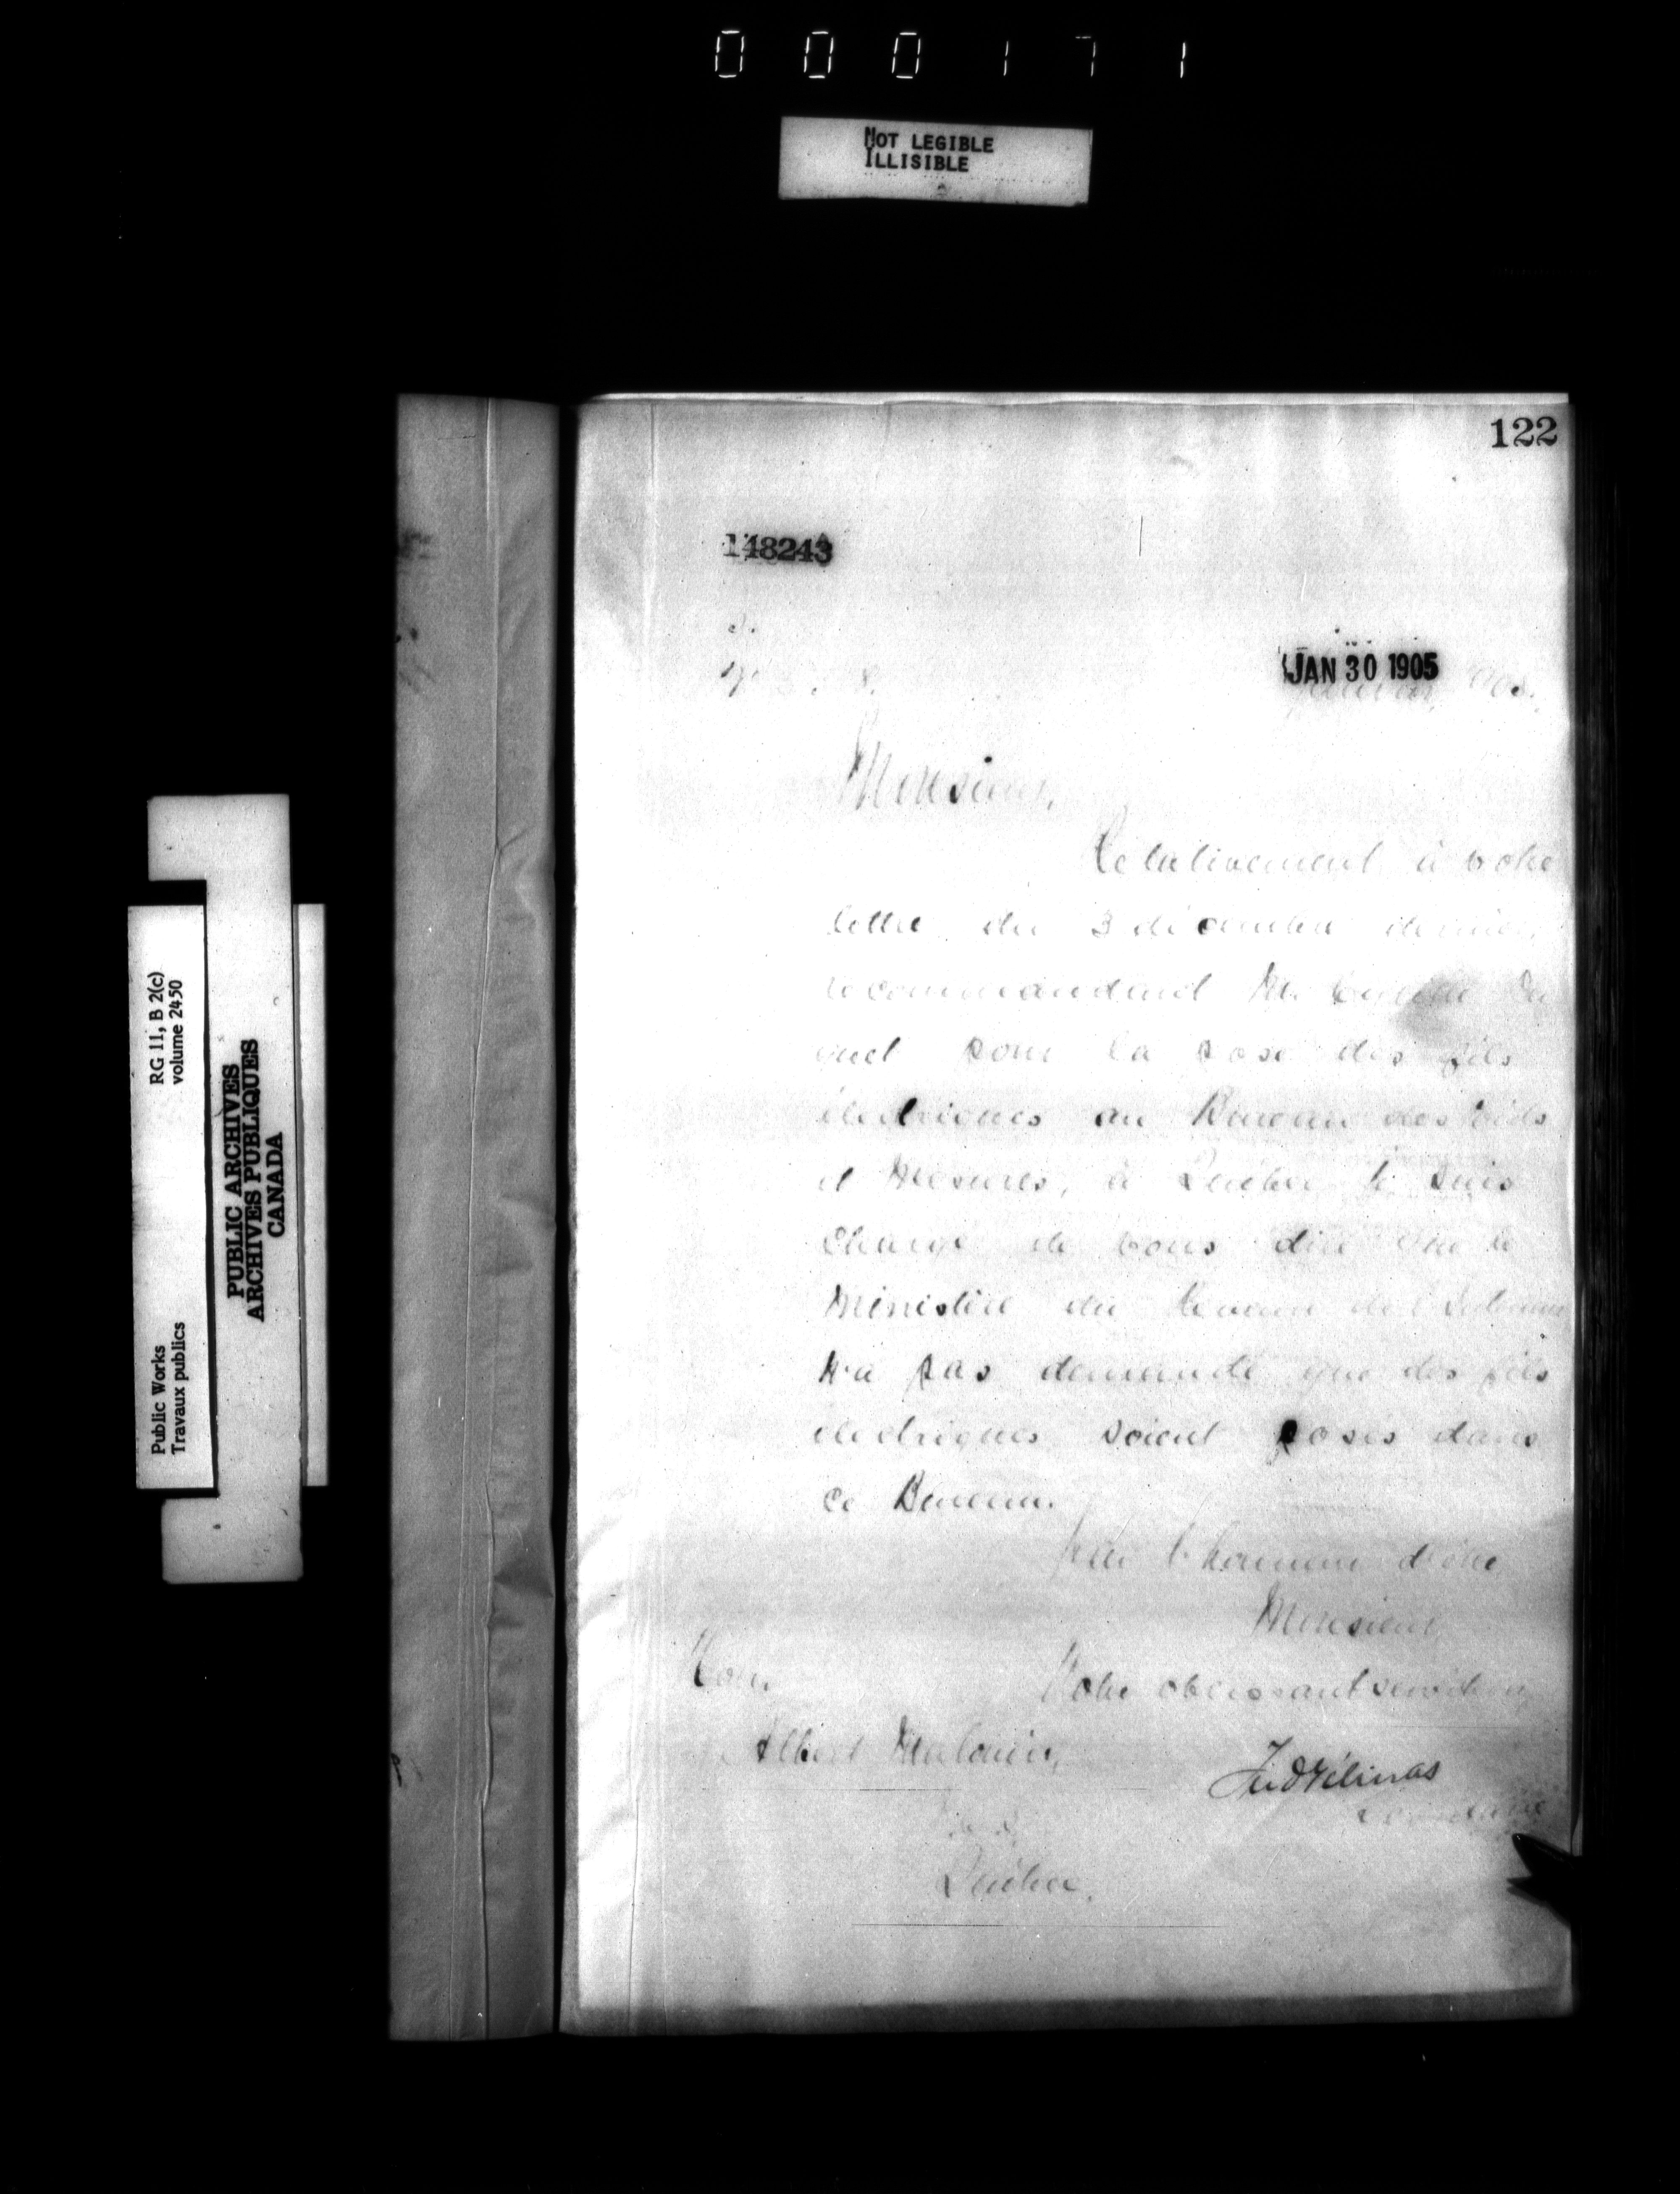 0 0 0 1 7 1
NOT LEGIBLE
ILLISIBLE
122
148243
JAN 30 1905
janvier
Monsieur,
Relativement à votre
lettre du 3 décembre dernier,
recommandant M.
pour la pose des fils
électriques au Bureau des Poids
et Mesures, à Québec, je suis
chargé de vous dire que le
Ministère du Revenu de l'Intérieur
n'a pas demandé que des fils
électriques soient posés dans
ce Bureau.
J'ai l'honneur d'être
Monsieur
Votre obéissant serviteur,
Albert Malouin,
Fred Gélinas
Secrétaire
Québec.
Public Works
Travaux publics
RG 11, B 2(c)
volume 2450
PUBLIC ARCHIVES
ARCHIVES PUBLIQUES
CANADA